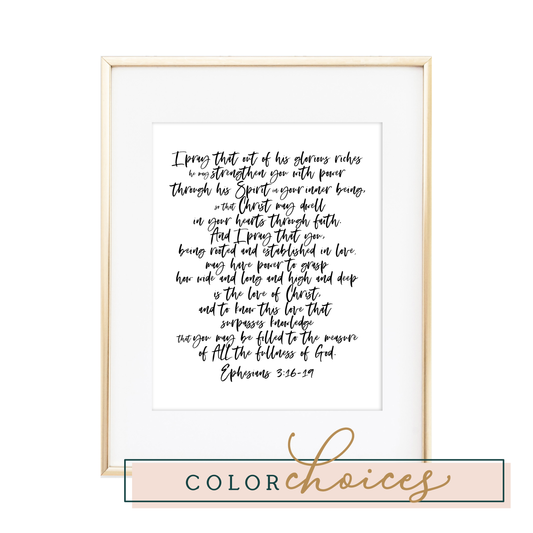 I pray that out of his glorious riches
he may strengthen you with power
through his Spirit in your inner being,
so that Christ may dwell
in your hearts through faith.
And I pray that you,
being rooted and established in love,
may have power to grasp
how wide and long and high and deep
is the love of Christ,
and to know this love that
surpasses knowledge
that you may be filled to the measure
of All the fullness of God.
Ephesians 3:16-19
COLOR choices